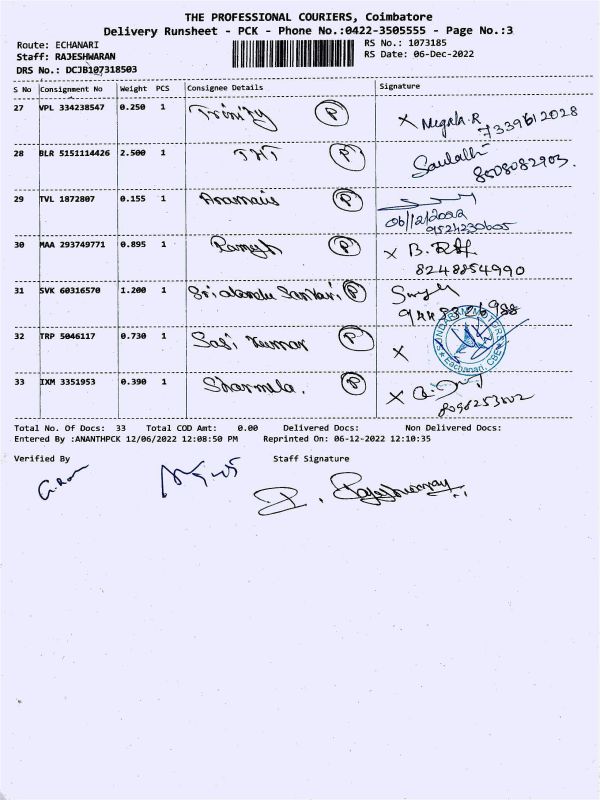 THE PROFESSIONAL COURIERS, Coimbatore
Delivery Runsheet - PCK - Phone No.:0422-3505555 - Page No.:3
Route: ECHANARI
RS No.: 1073185
Staff: RAJESHWARAN
RS Date: 06-Dec-2022
DRS No.: DCJB107318503
S No Consignment No Weight PCS Consignee Details Signature
27 VPL 334238547 0.250 1 Trinity P X Megala.R
7339612028
28 BLR 5151114426 2.500 1 P
8608082903.
29 TVL 1872807 0.155 1 Aramais P
06/12/2022
9524230605
30 MAA 293749771 0.895 1 Ramesh P X B.
8248854990
31 SVK 60316570 1.200 1 P
32 TRP 5046117 0.730 1 Sasi Kumar P X
SUNDARAM MOTORS
Eachanari, CBE
33 IXM 3351953 0.390 1 Sharmila. P X
Total No. Of Docs: 33 Total COD Amt: 0.00 Delivered Docs: Non Delivered Docs:
Entered By :ANANTHPCK 12/06/2022 12:08:50 PM Reprinted On: 06-12-2022 12:10:35
Verified By Staff Signature